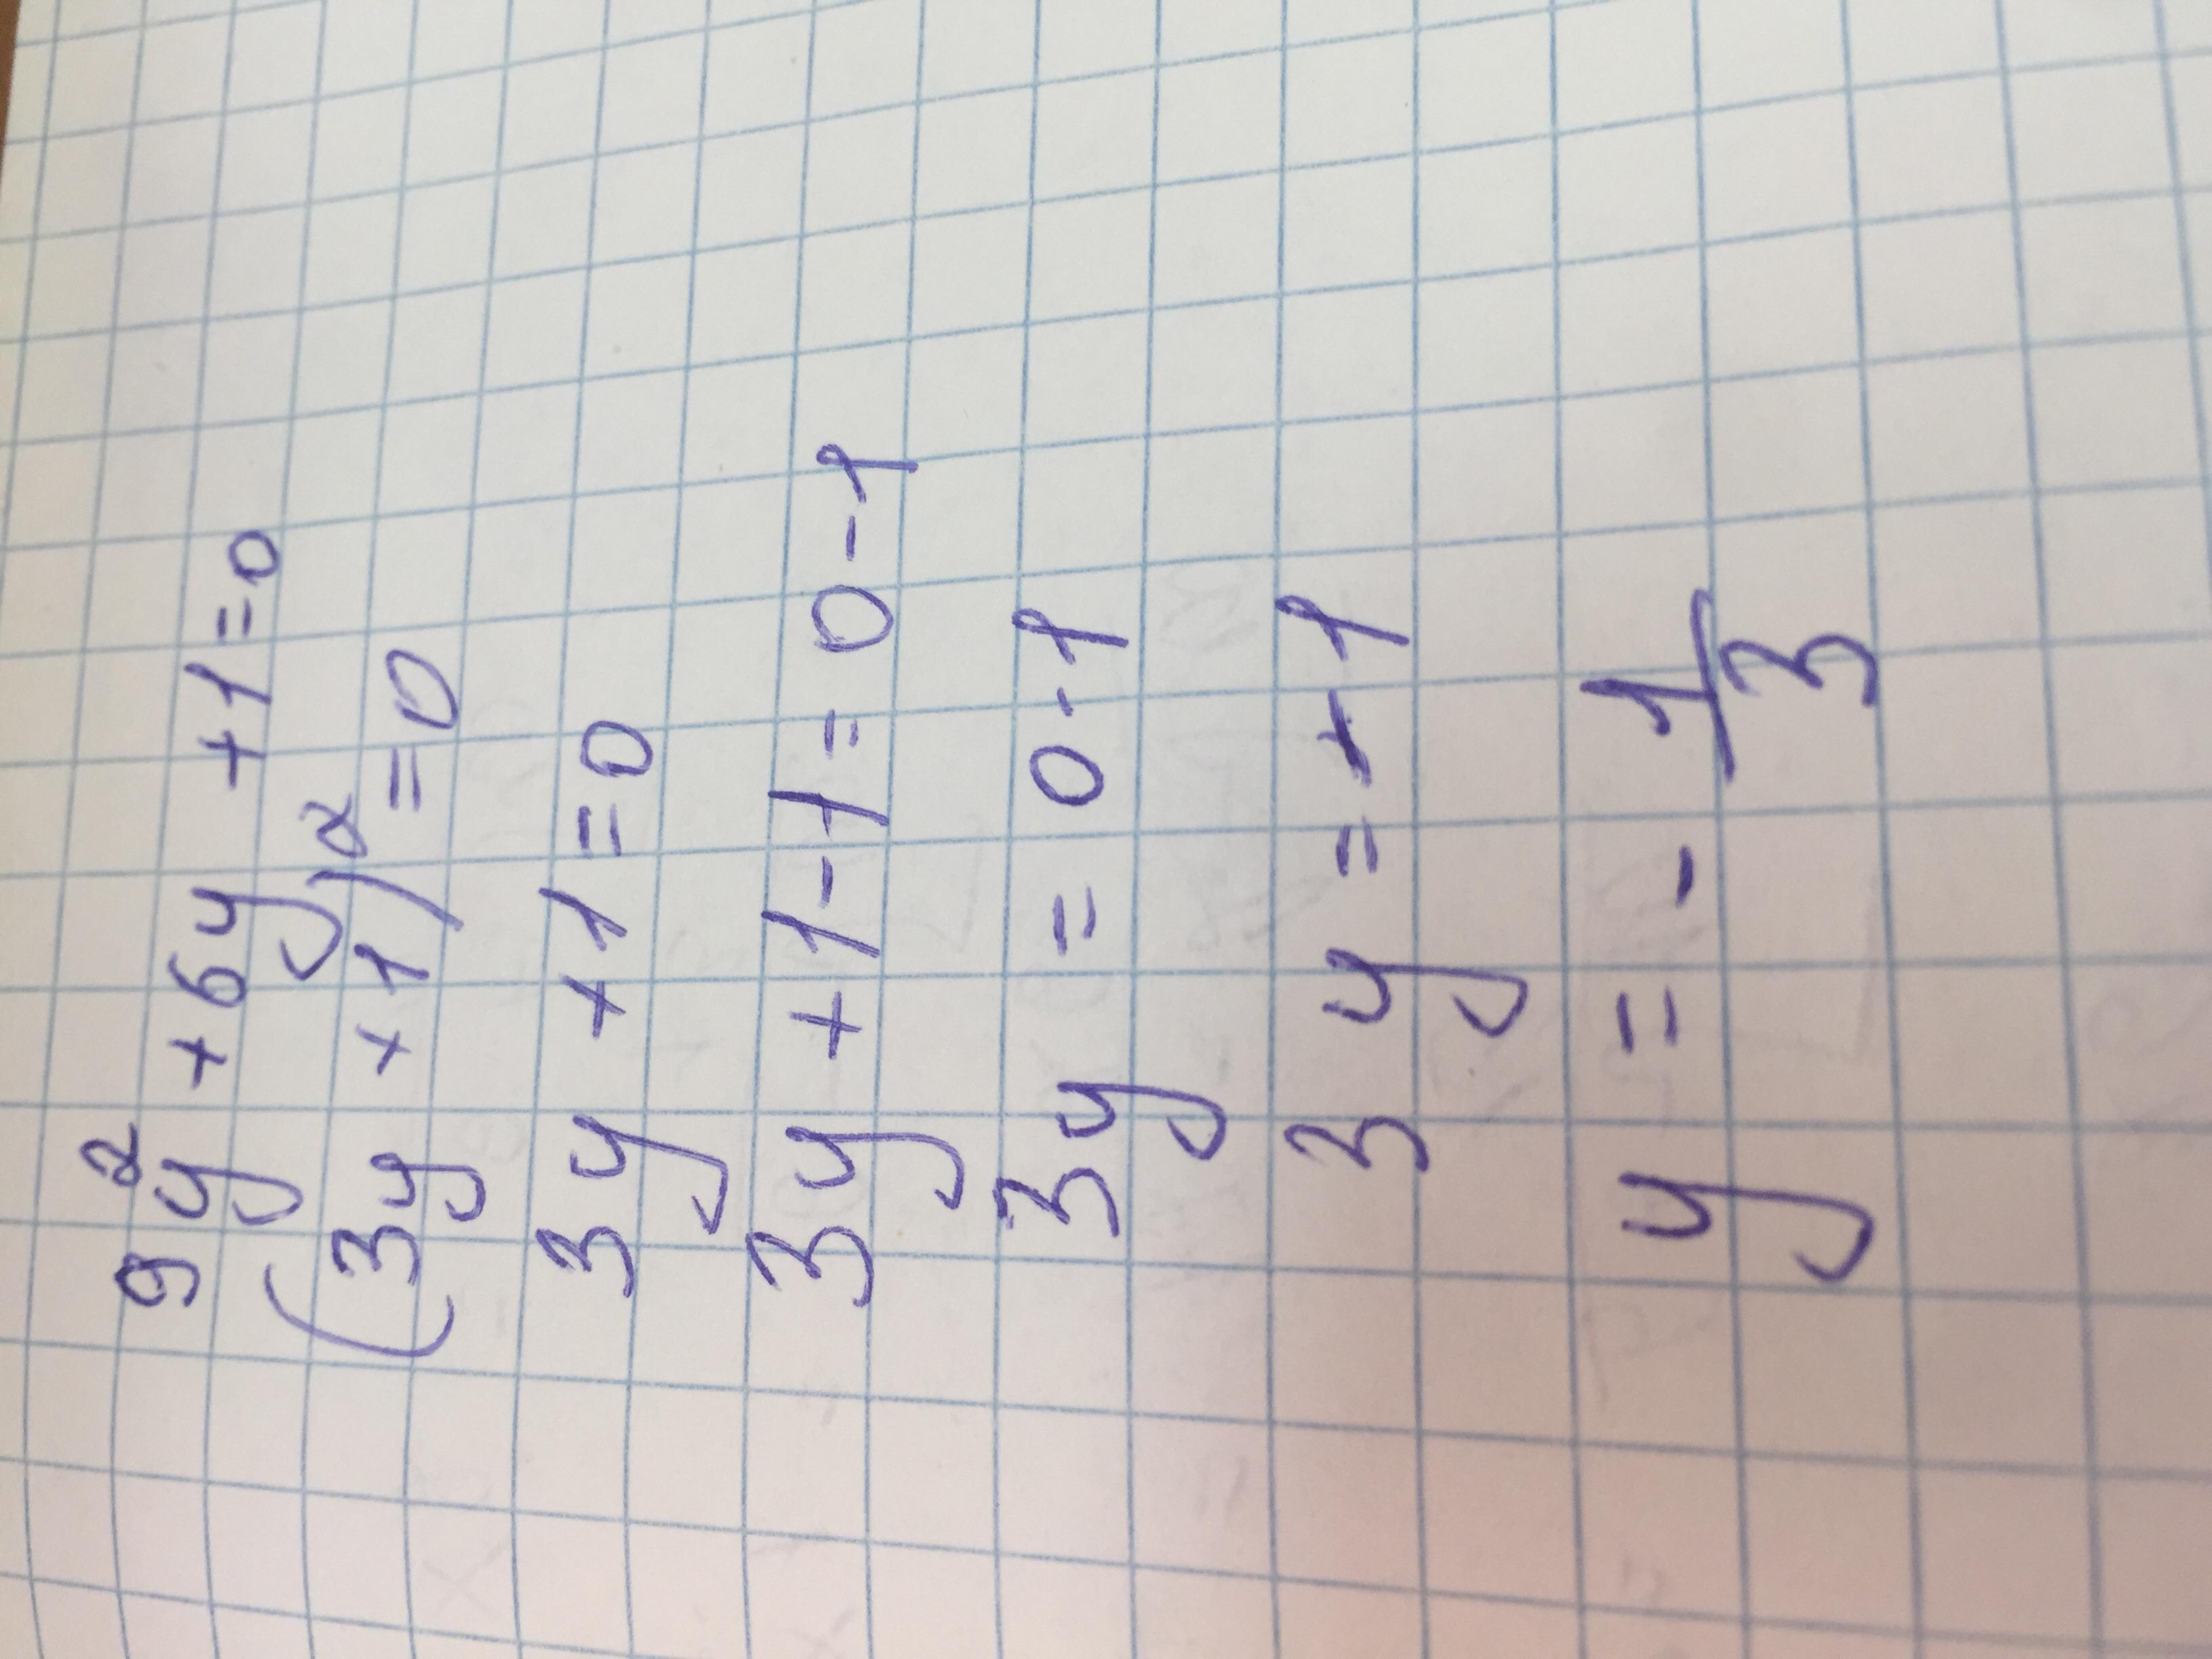 9y² + 6y + 1 = 0
(3y + 1)² = 0
3y + 1 = 0
3y + 1 - 1 = 0 - 1
3y = 0 - 1
3y = - 1
y = - 1/3